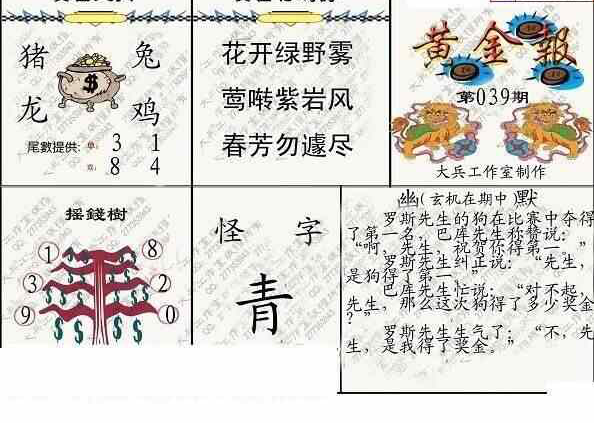 猪 兔
龙 鸡
尾數提供: 单: 3 1
双: 8 4
花开绿野雾
莺啭紫岩风
春芳勿遽尽
黄金報
第039期
大兵工作室制作
摇錢樹
1 8
3 2
9 0
怪 字
青
幽(玄机在期中)默
罗斯先生的狗在比赛中夺得
了第一名,巴库先生称赞说:
“啊,先生,祝贺你得第一。”
罗斯先生纠正说:“先生,
是狗得了第一。”
巴库先生忙说:“对不起,
先生,那么这次狗得了多少奖金
?”
罗斯先生生气了:“不,先
生,是我得了奖金。”